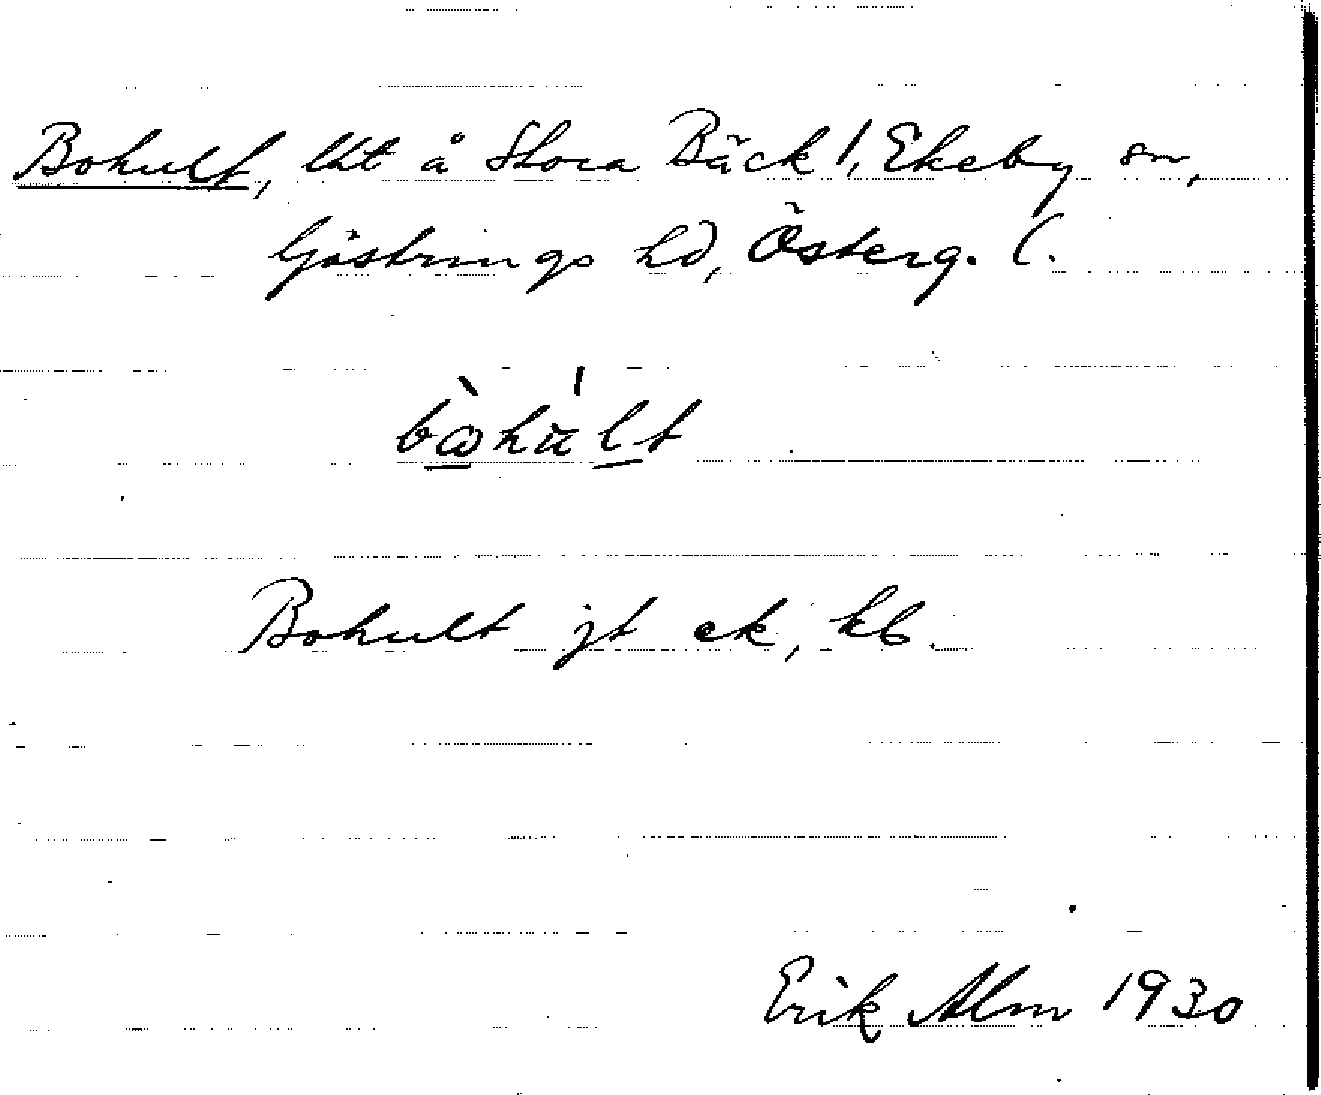 Bohult, lht å Stora Bäck 1, Ekeby sn,
Göstrings hd, Österg. l.
Bohult jt ek, kb.
Erik Alm 1930